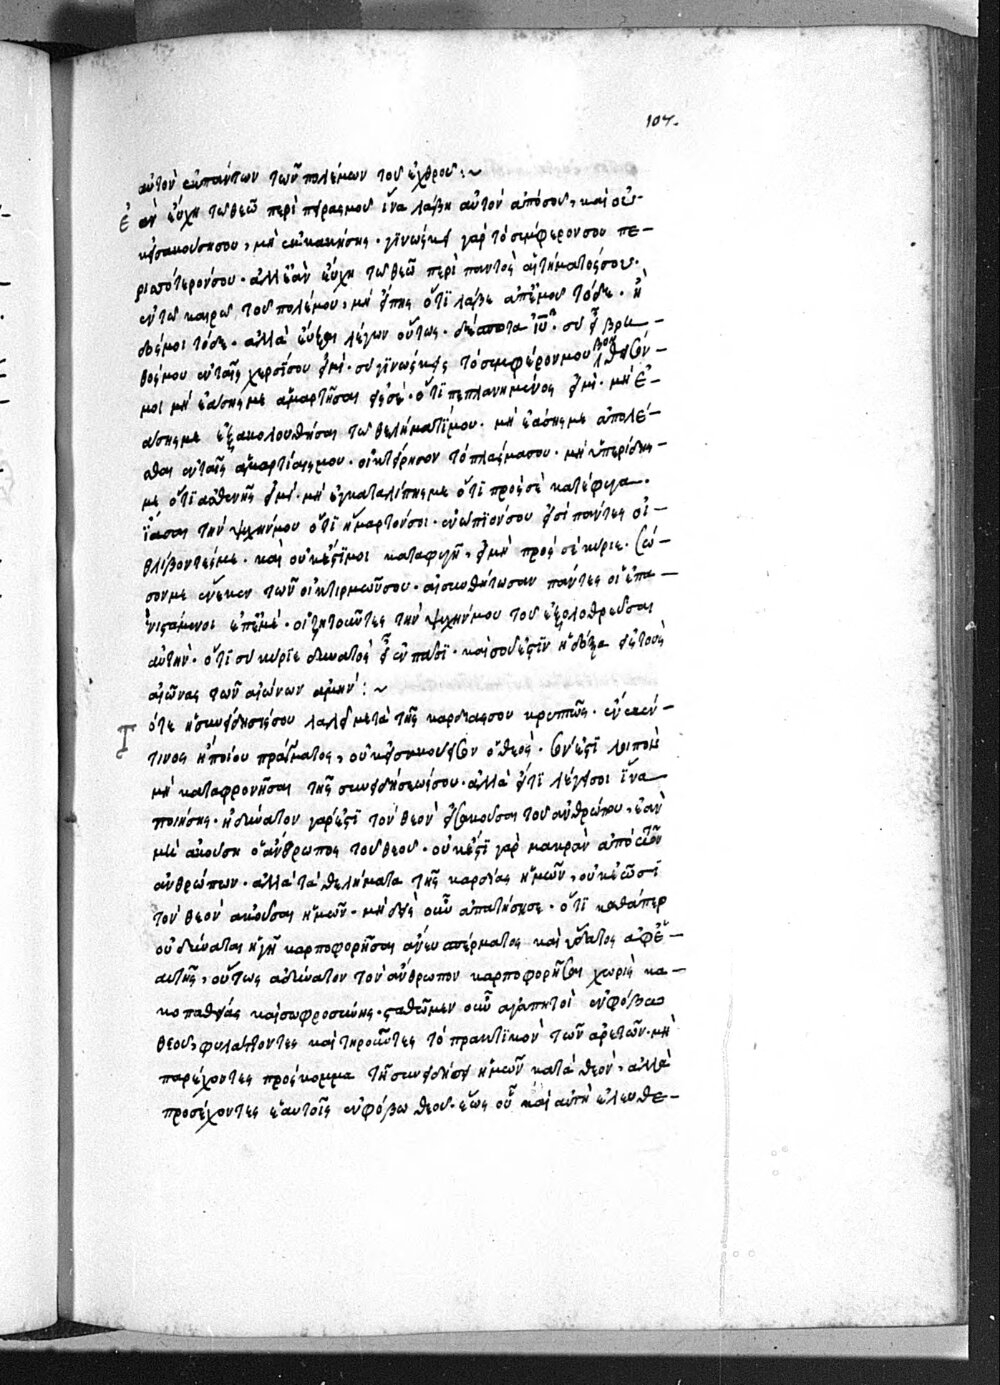 107.
αὐτὸν ἐκ πάντων τῶν πολέμων τοῦ ἐχθροῦ :~
Ἐὰν εὔχη τῶ θεῶ περὶ πειρασμοῦ ἵνα λάβη αὐτὸν ἀπό σου, καὶ οὐ-
κ εἰσακούση σου, μὴ ἐκκακήσης · γινώσκει γὰρ τὸ συμφέρον σου πε-
ρισσότερόν σου · ἀλλ' ἐὰν εὔχη τῶ θεῶ περὶ παντὸς αἰτήματός σου ·
ἐν τῶ καιρῶ τοῦ πολέμου, μὴ εἴπης ὅτι λάβε ἀπ' ἐμοῦ τόδε · ἢ
δός μοι τόδε · ἀλλὰ εὔξαι λέγων οὕτως · δέσποτα ἰῦ · σὺ εἶ βοη-
θός μου ἐν ταῖς χερσί σου εἰμὶ · σὺ γινώσκεις τὸ συμφέρον μου βοήθησόν
μοι μὴ ἐάσης με ἁμαρτῆσαι εἰς σὲ · ὅτι πεπλανημένος εἰμὶ · μὴ ἐ-
άσης με ἐξακολουθῆσαι τῶ θελήματί μου · μὴ ἐάσης με ἀπολέ-
σθαι ἐν ταῖς ἁμαρτίαις μου · οἰκτείρησον τὸ πλάσμα σου · μὴ ὑπερίδης
με ὅτι ἀσθενής εἰμι · μὴ ἐγκαταλίπης με ὅτι πρὸς σὲ κατέφυγα ·
ἴασαι τὴν ψυχήν μου ὅτι ἥμαρτόν σοι · ἐνώπιόν σου εἰσὶ πάντες οἱ
θλίβοντές με · καὶ οὐκ ἔστι μοι καταφυγὴ, εἰ μὴ πρὸς σὲ κύριε · σῶ-
σόν με ἕνεκεν τῶν οἰκτιρμῶν σου · αἰσχυνθήτωσαν πάντες οἱ ἐπα-
νιστάμενοι ἐπ' ἐμὲ · οἱ ζητοῦντες τὴν ψυχήν μου τοῦ ἐξολοθρεῦσαι
αὐτήν · ὅτι σὺ κύριε δυνατὸς εἶ ἐν παντὶ · καὶ σοῦ ἐστὶν ἡ δόξα εἰς τοὺς
αἰῶνας τῶν αἰώνων ἀμήν :~
Ὅτε ἡ συνείδησίς σου λαλεῖ μετὰ τῆς καρδίας σου κρυπτῶς ·
τινος ἢ ποίου πράγματος, οὐκ εἰσήκουσεν ὁ θεὸς · λοιπὸν
μὴ καταφρονῆσαι τῆς συνειδήσεώς σου · ἀλλὰ εἴ τι λέγει σοι ἵνα
ποιήσης · ἀδύνατον γάρ ἐστι τὸν θεὸν εἰσακοῦσαι τοῦ ἀνθρώπου, ἐὰν
μὴ ἀκούση ὁ ἄνθρωπος τοῦ θεοῦ · οὐκ ἔστι γὰρ μακρὰν ἀπὸ τῶν
ἀνθρώπων · ἀλλὰ τὰ θελήματα τῆς καρδίας ἡμῶν, οὐκ ἐῶσι
τὸν θεὸν ἀκοῦσαι ἡμῶν · μηδεὶς οὖν ἀπατήση σε · ὅτι καθάπερ
οὐ δύναται ἡ γῆ καρποφορῆσαι ἄνευ σπέρματος καὶ ὕδατος ἀφ' ἑ-
αυτῆς, οὕτως ἀδύνατον τὸν ἄνθρωπον καρποφορῆσαι χωρὶς κα-
κοπαθείας καὶ σωφροσύνης · σταθῶμεν οὖν ἀγαπητοὶ ἐν φόβω
θεοῦ, φυλάττοντες καὶ τηροῦντες τὸ πρακτικὸν τῶν ἀρετῶν · μὴ
παρέχοντες πρόσκομμα τῆ συνειδήσει ἡμῶν κατὰ θεὸν · ἀλλὰ
προσέχοντες ἑαυτοῖς ἐν φόβω θεοῦ · ἕως οὗ καὶ αὐτὴ ἐλευθε-